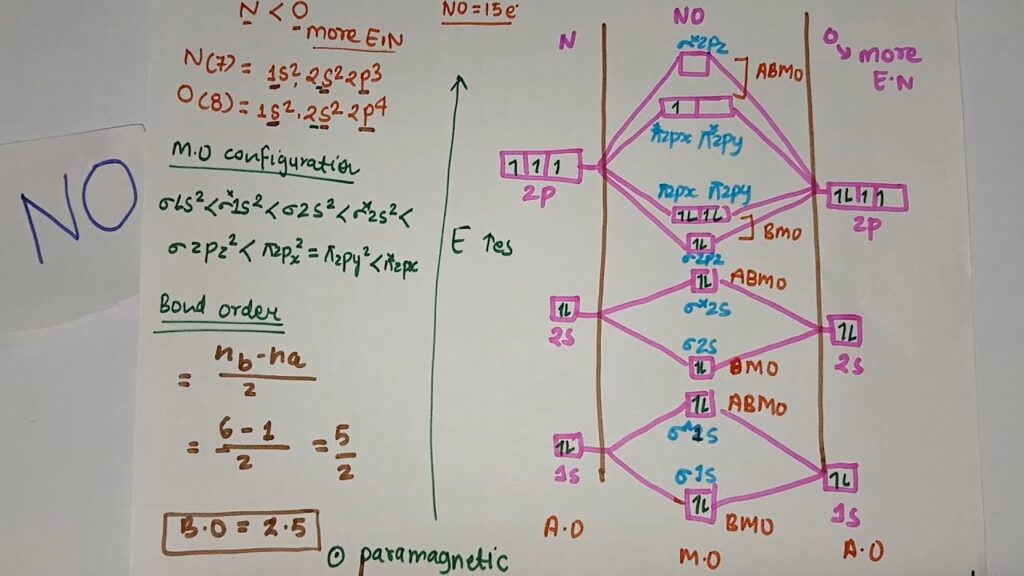 NO
N < O
more E.N
N(7) = 1s², 2s² 2p³
O(8) = 1s², 2s² 2p⁴
M.O configuration
σ1s² < σ*1s² < σ2s² < σ*2s² <
σ2pz² < π2px² = π2py² < π*2px
Bond order
= nb - na / 2
= 6 - 1 / 2 = 5 / 2
B.O = 2.5
⊙ paramagnetic
NO = 15e⁻
E ↑es
N
NO
O
more
E.N
σ*2pz
ABMO
1
π*2px π*2py
1 1 1
2p
1L 1 1
2p
π2px π2py
1L 1L
BMO
1L
σ2pz
1L ABMO
σ*2s
1L
2s
1L
2s
σ2s
1L BMO
1L ABMO
σ*1s
1L
1s
1L
1s
σ1s
1L BMO
A.O
M.O
A.O